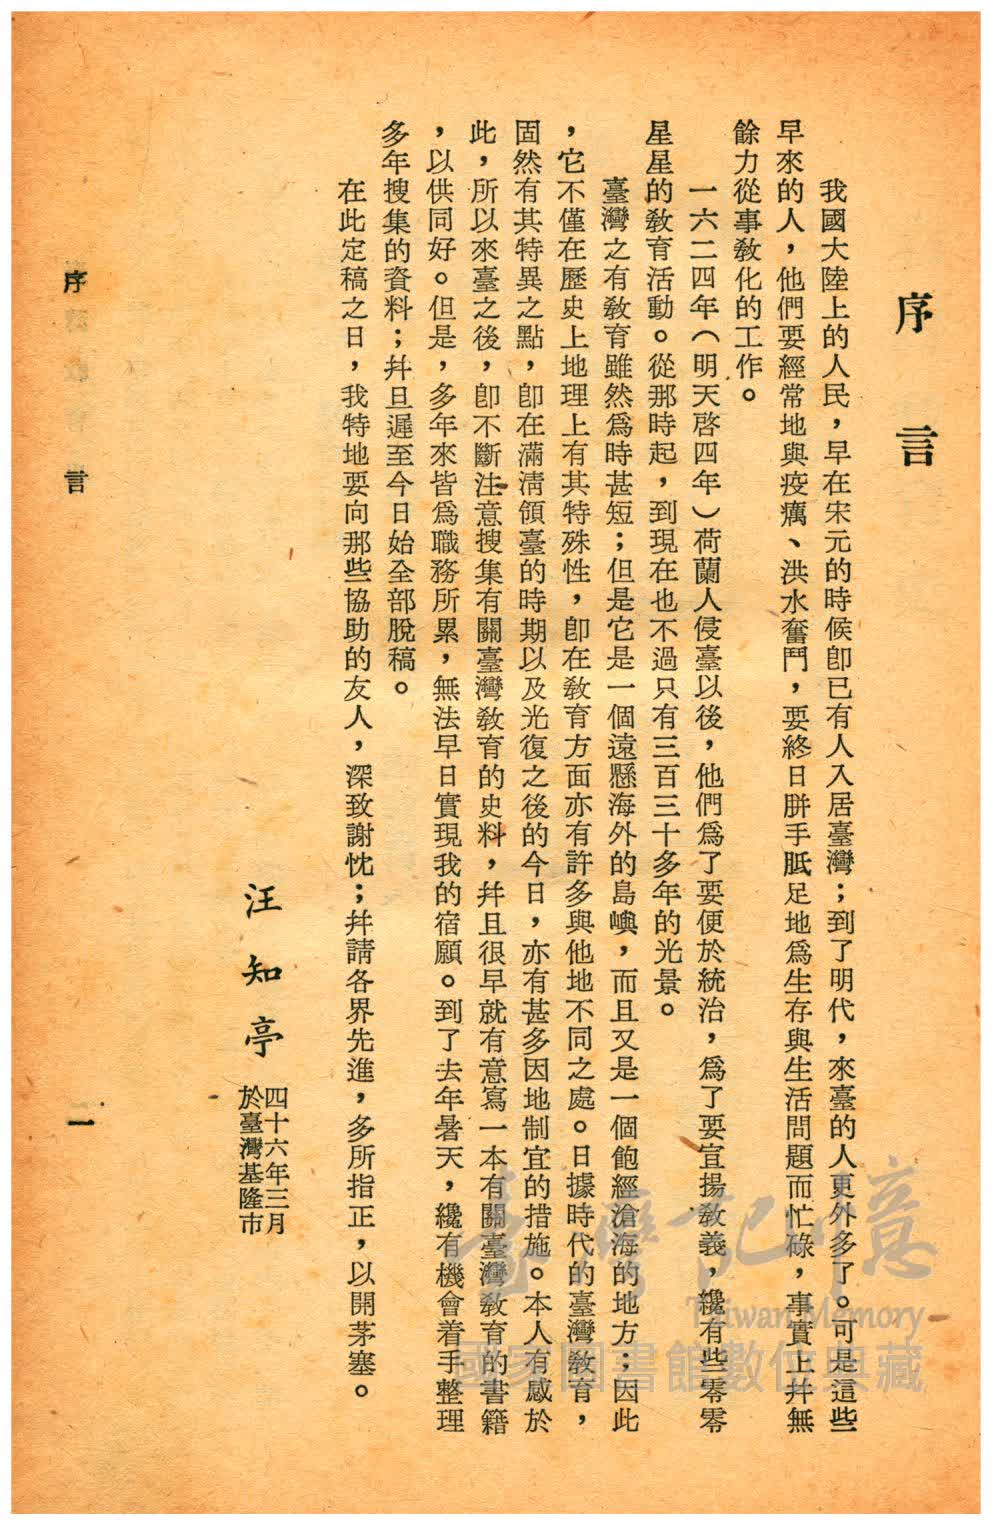 序言
我國大陸上的人民，早在宋元的時候卽已有人入居臺灣；到了明代，來臺的人更外多了。可是這些
早來的人，他們要經常地與疫癘、洪水奮鬥，要終日胼手胝足地爲生存與生活問題而忙碌，事實上幷無
餘力從事敎化的工作。
一六二四年（明天啓四年）荷蘭人侵臺以後，他們爲了要便於統治，爲了要宣揚敎義，纔有些零零
星星的敎育活動。從那時起，到現在也不過只有三百三十多年的光景。
臺灣之有敎育雖然爲時甚短；但是它是一個遠懸海外的島嶼，而且又是一個飽經滄海的地方；因此
，它不僅在歷史上地理上有其特殊性，卽在敎育方面亦有許多與他地不同之處。日據時代的臺灣敎育，
固然有其特異之點，卽在滿淸領臺的時期以及光復之後的今日，亦有甚多因地制宜的措施。本人有感於
此，所以來臺之後，卽不斷注意搜集有關臺灣敎育的史料，幷且很早就有意寫一本有關臺灣敎育的書籍
，以供同好。但是，多年來皆爲職務所累，無法早日實現我的宿願。到了去年暑天，纔有機會着手整理
多年搜集的資料；幷且遲至今日始全部脫稿。
在此定稿之日，我特地要向那些協助的友人，深致謝忱；幷請各界先進，多所指正，以開茅塞。
汪知亭
四十六年三月
於臺灣基隆市
序言
一
臺灣記憶
Taiwan Memory
國家圖書館數位典藏